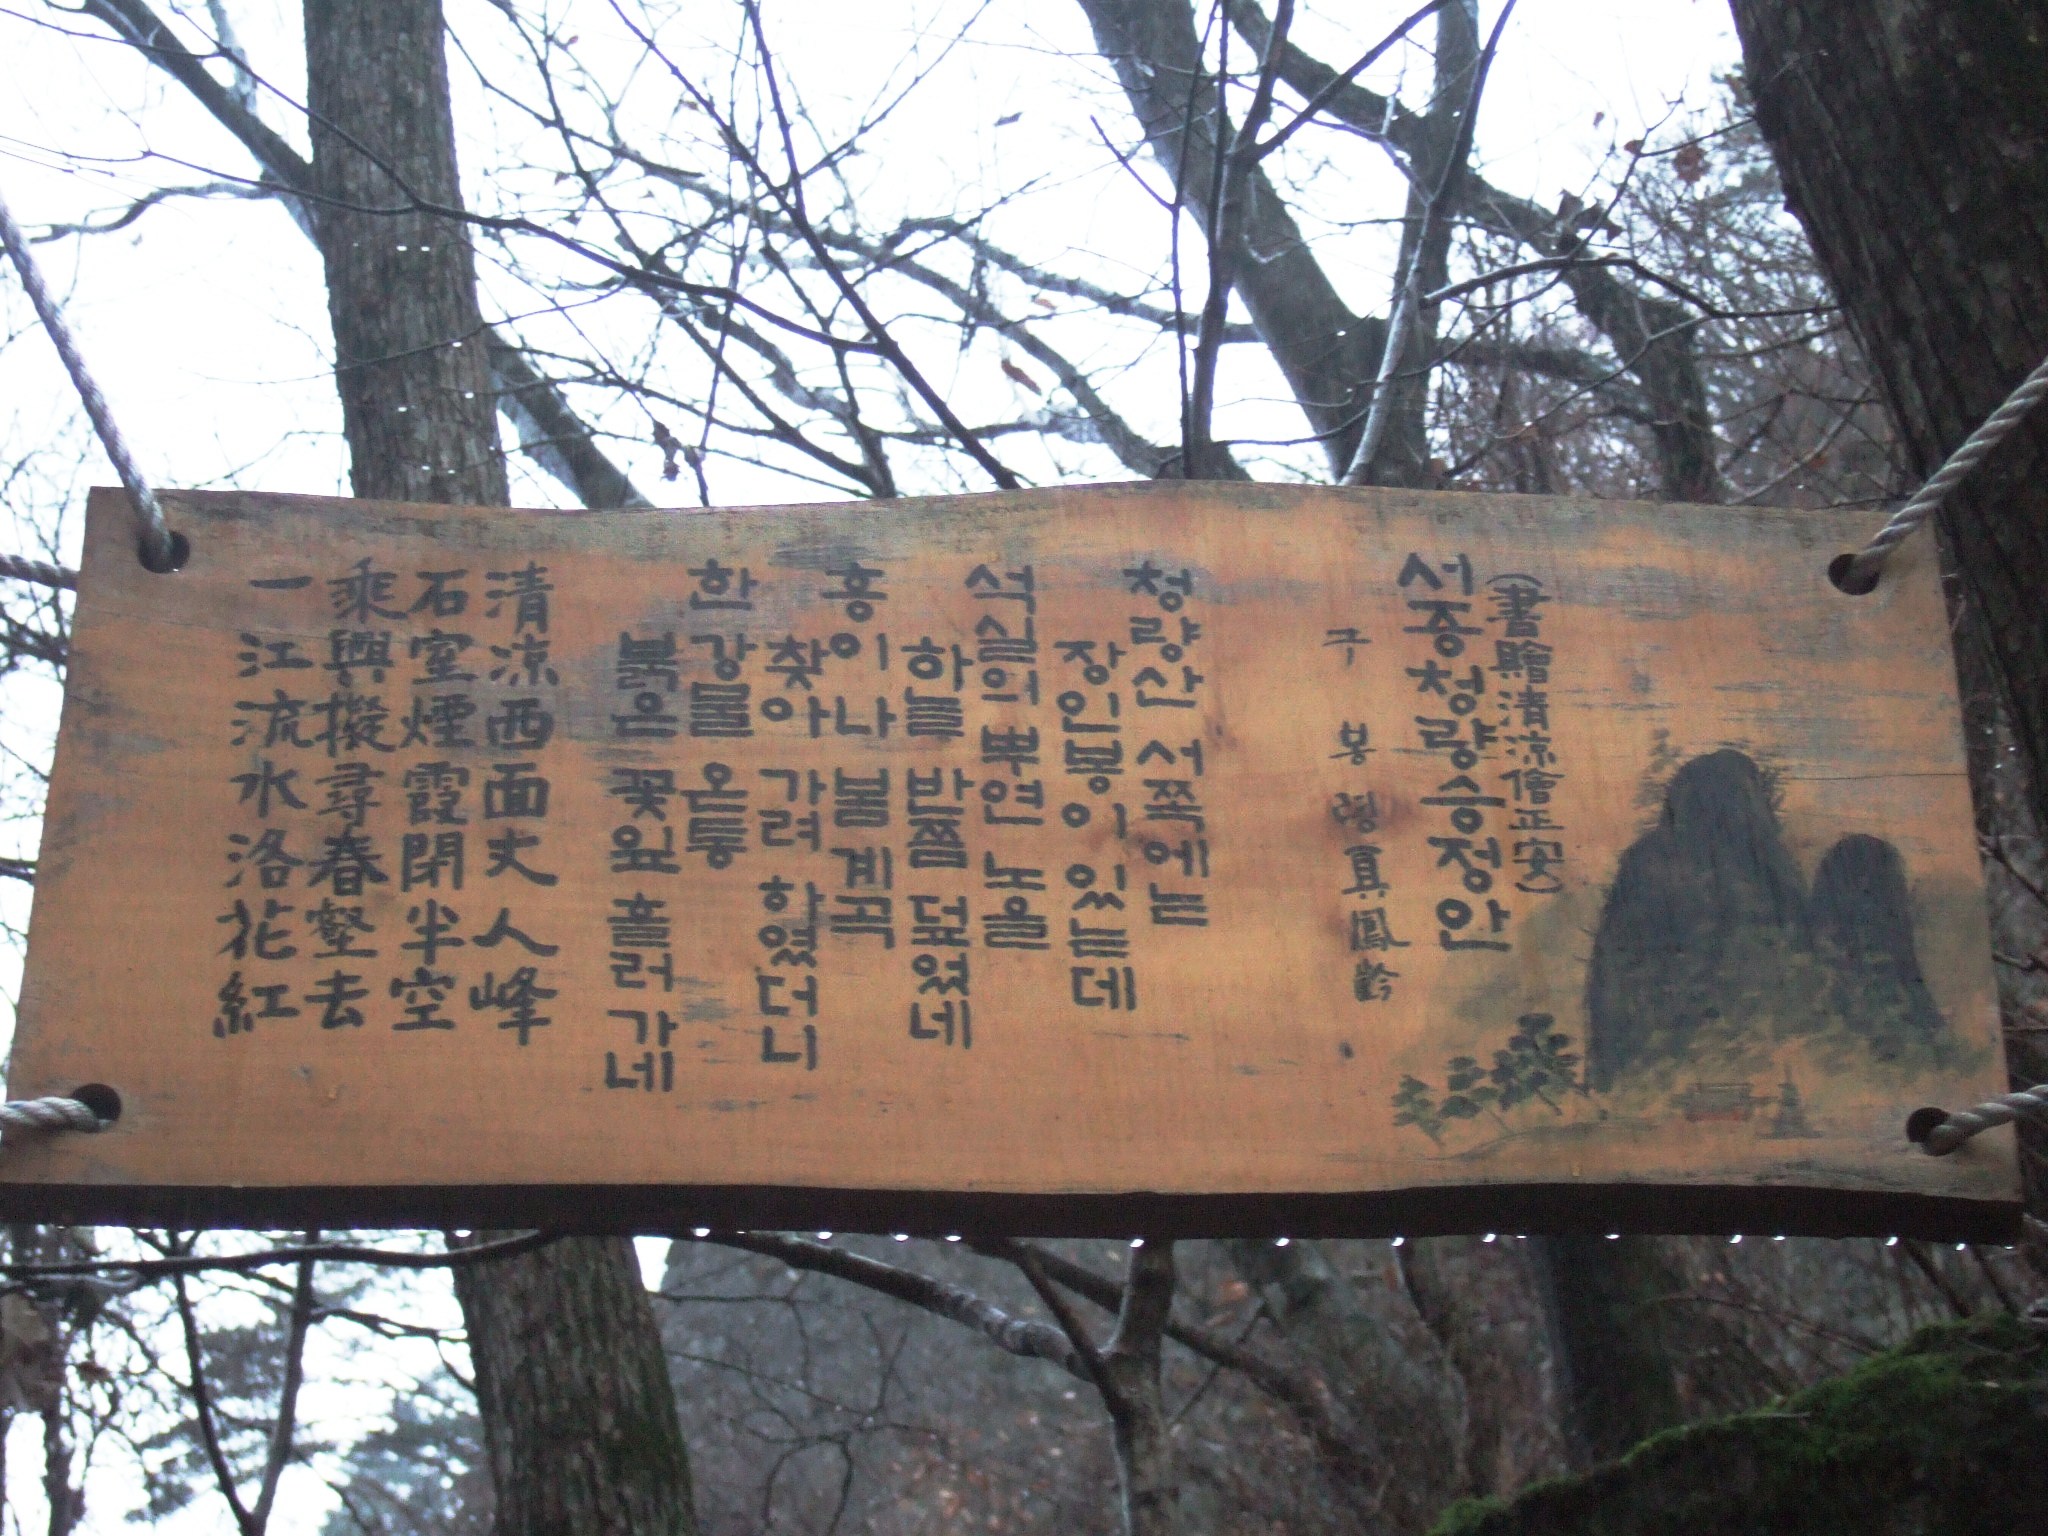 (書贈清凉僧正安)
서증청량승정안
구 봉 령 具鳳齡
청량산 서쪽에는
장인봉이 있는데
석실의 뿌연 노을
하늘 반쯤 덮였네
흥이나 봄 계곡
찾아 가려 하였더니
한강물 온통
붉은 꽃잎 흘러 가네
清凉西面丈人峰
石室煙霞閉半空
乘興擬尋春壑去
一江流水洛花紅